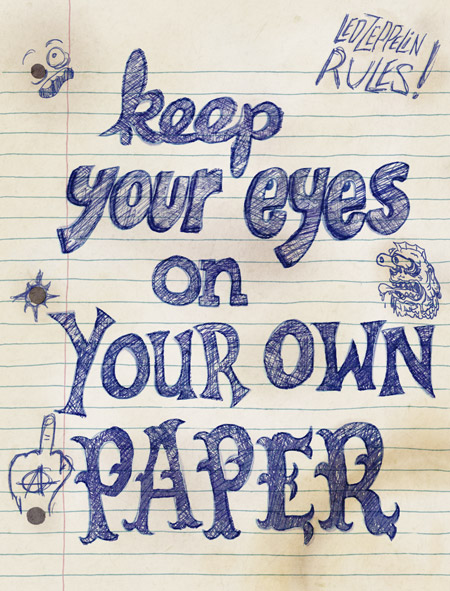 LED ZEPPELIN
RULES!
keep
your eyes
on
YOUR OWN
PAPER